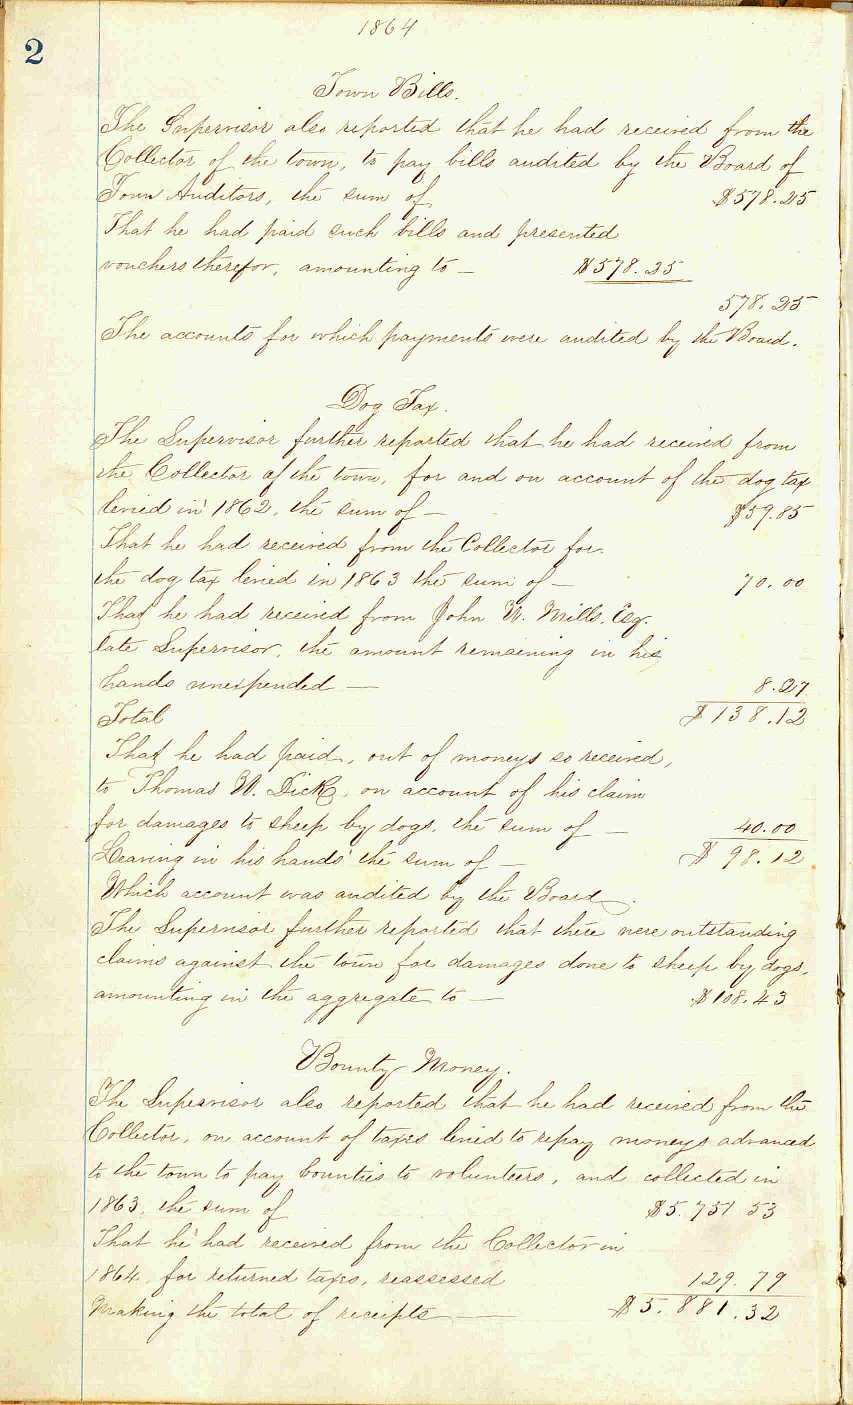 1864
2
Town Bills.
The Supervisor also reported that he had received from the
Collector of the town, to pay bills audited by the Board of
Town Auditors, the sum of, $578.25
That he had paid such bills and presented
vouchers therefor, amounting to — $578.25
578.25
The accounts for which payments were audited by the Board.
Dog Tax.
The Supervisor further reported that he had received from
the Collector of the town, for and on account of the dog tax
levied in 1862, the sum of — $59.85
That he had received from the Collector for
the dog tax levied in 1863 the sum of — 70.00
That he had received from John W. Mills, Esq.
late Supervisor, the amount remaining in his
hands unexpended — 8.27
Total $138.12
That he had paid, out of moneys so received,
to Thomas W. Dick, on account of his claim
for damages to sheep by dogs, the sum of — 40.00
Leaving in his hands the sum of — $98.12
Which account was audited by the Board.
The Supervisor further reported that there were outstanding
claims against the town for damages done to sheep by dogs,
amounting in the aggregate to — $108.43
Bounty Money.
The Supervisor also reported that he had received from the
Collector, on account of taxes levied to repay moneys advanced
to the town to pay bounties to volunteers, and collected in
1863, the sum of $5.751 53
That he had received from the Collector in
1864, for returned taxes, reassessed 129.79
Making the total of receipts — $5.881.32